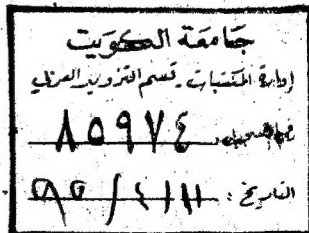 جامعة الكويت
إدارة المكتبات . قسم التزويد العربي
رقم التسجيل ٨٥٩٧٤
التاريخ :